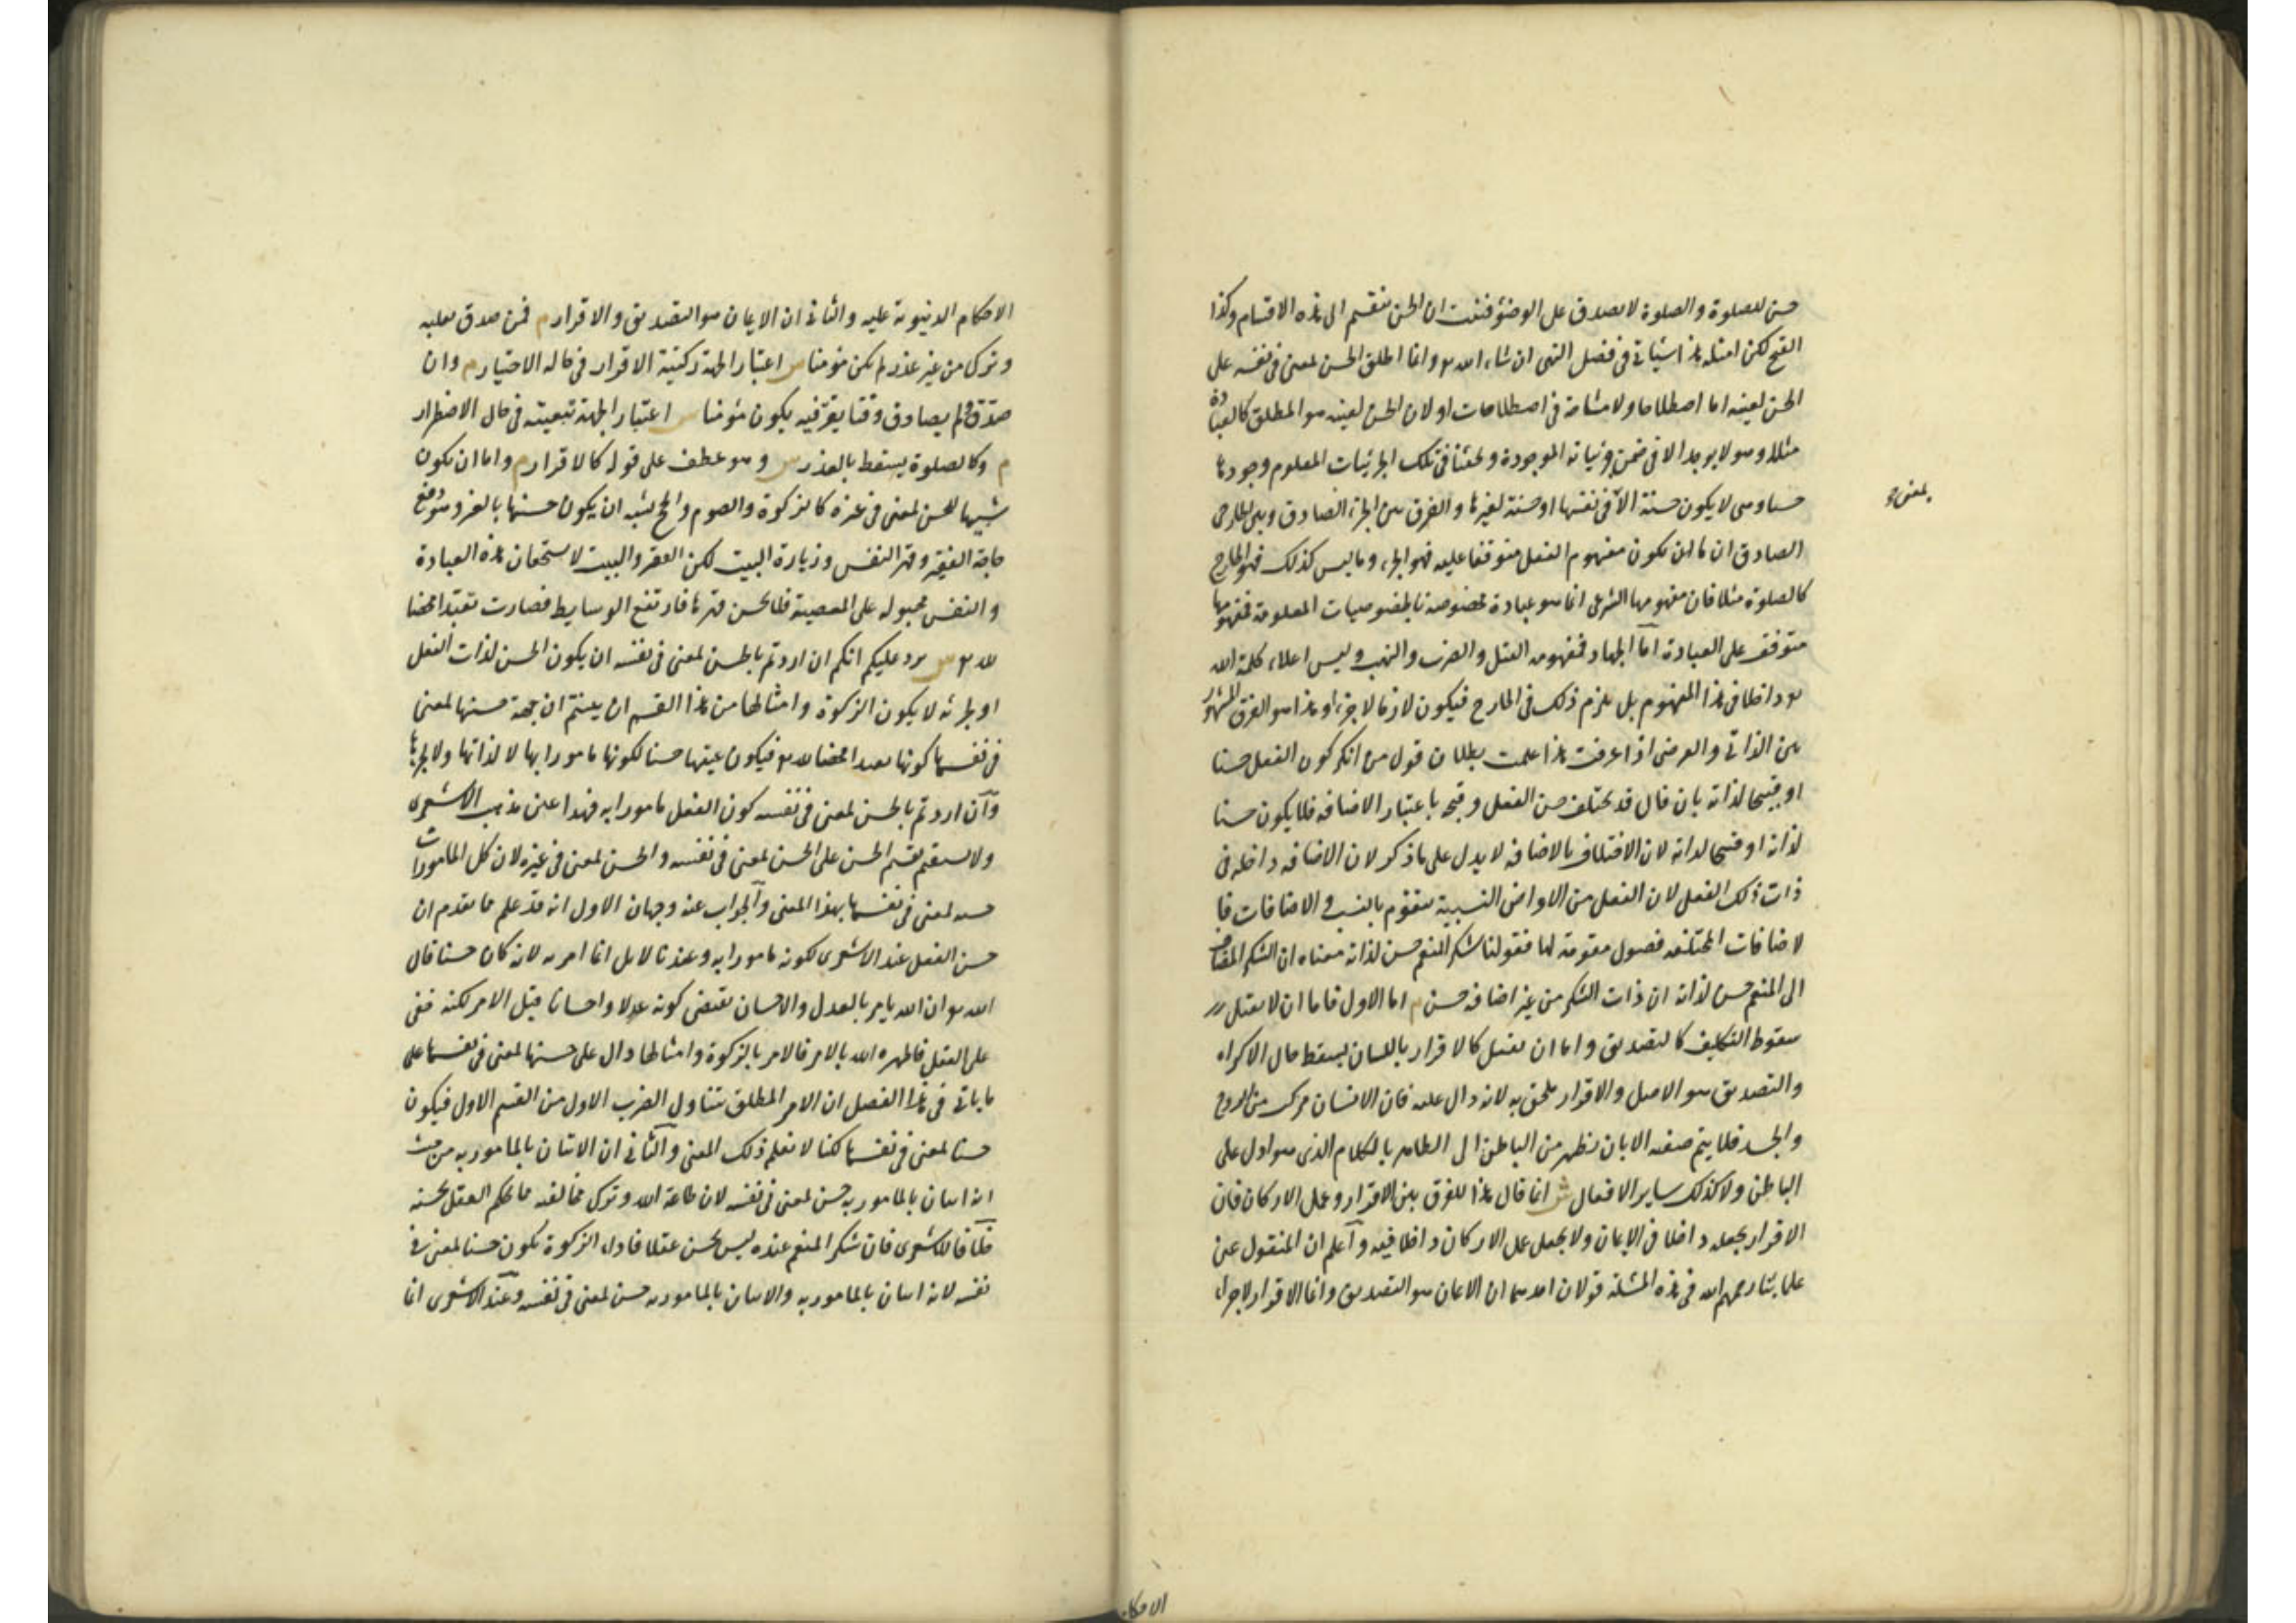 حسن للصلوة والصلوة لا يصدق على الوضوء فثبت ان الحسن ينقسم الى هذه الاقسام وكذا
القبح لكن امثلة هذا سيأتي في فصل النهى ان شاء الله تع وانما اطلق الحسن لمعنى في نفسه على
الحسن لعينه اما اصطلاحا ولا مشاحة في اصطلاحات او لان الحسن لعينه هو المطلق كالعبادة
مثلا وهو لا يوجد الا في ضمن جزئياته الموجودة وبحثنا في تلك الجزئيات المعلوم وجودها
حسا وهى لا يكون حسنة الا في نفسها او حسنة لغيرها والفرق بين الجزء الصادق وبين الخارجى
بمعنى
الصادق ان ما ان يكون مفهوم الفعل متوقفا عليه فهو الجزء وما ليس كذلك فهو الخارج
كالصلوة مثلا فان مفهومها الشرعى انما هو عبادة مخصوصة بالخصوصيات المعلومة فمفهومها
متوقف على العبادة اما الجهاد فمفهومه القتل والضرب والنهب وليس اعلاء كلمة الله
تع داخلا في هذا المفهوم بل يلزم ذلك في الخارج فيكون لازما لا جزءا وهذا هو الفرق المشهور
بين الذاتي والعرضى اذا عرفت هذا علمت بطلان قول من انكر كون الفعل حسنا
او قبيحا لذاته بان قال قد يختلف حسن الفعل وقبحه باعتبار الاضافه فلا يكون حسنا
لذاته او قبيحا لذاته لان الاختلاف بالاضافه لا يدل على ما ذكر لان الاضافه داخله في
ذات ذلك الفعل لان الفعل من الاعراض النسبية متقوم بالنسب والاضافات فا
لاضافات المختلفه فصول مقومة لها فقولنا شكر المنعم حسن لذاته معناه ان الشكر المضاف
الى المنعم حسن لذاته ان ذات الشكر من غير اضافه حسن م اما الاول فاما ان لا يقبل
سقوط التكليف كالتصديق واما ان يقبل كالاقرار باللسان يسقط حال الاكراه
والتصديق هو الاصل والاقرار ملحق به لانه دال عليه فان الانسان مركب من الروح
والجسد فلا يتم صفه الايمان يظهر من الباطن الى الظاهر بالكلام الذى هو ادل على
الباطن ولا كذلك ساير الافعال ش انما قال هذا للفرق بين الاقرار وعمل الاركان فان
الاقرار يجعله داخلا في الايمان ولا يجعل عمل الاركان داخلا فيه واعلم ان المنقول عن
علمائنا رحمهم الله في هذه المسئلة قولان احدهما ان الايمان هو التصديق وانما الاقرار لاجراء
الاحكام
الاحكام الدنيوية عليه والثاني ان الايمان هو التصديق والاقرار م فمن صدق بقلبه
وترك من غير عذر لم يكن مؤمنا ش اعتبارا لجهة ركنية الاقرار في حالة الاختيار م وان
صدق ولم يصادف وقتا يقر فيه يكون مؤمنا ش اعتبارا لجهة تبعيته في حال الاضطرار
م وكالصلوة يسقط بالعذر ش وهو عطف على قوله كالاقرار م واما ان يكون
شبيها للحسن لمعنى في غيره كالزكوة والصوم والحج يشبه ان يكون حسنها بالغير وهو دفع
حاجة الفقير وقهر النفس وزيارة البيت لكن الفقير والبيت لا يستحقان هذه العبادة
والنفس مجبوله على المعصية فلا يحسن قهرها فارتفع الوسايط فصارت تعبدا محضا
لله تع ش يرد عليكم انكم ان اردتم بالحسن لمعنى في نفسه ان يكون الحسن لذات الفعل
او لجزئه لا يكون الزكوة وامثالها من هذا القسم ان بينتم ان جهة حسنها لمعنى
في نفسها كونها تعبدا محضا لله تع فيكون عينها حسنا لكونها مامورا بها لا لذاتها ولا لجزئها
وان اردتم بالحسن لمعنى في نفسه كون الفعل مامورا به فهذا عين مذهب الاشعرى
ولا يستقيم تقسيم الحسن على الحسن لمعنى في نفسه والحسن لمعنى في غيره لان كل المامورات
حسنه لمعنى في نفسها بهذا المعنى والجواب عنه وجهان الاول انه قد علم مما تقدم ان
حسن الفعل عند الاشعرى لكونه مامورا به وعندنا لا بل انما امر به لانه كان حسنا قال
الله تع ان الله يامر بالعدل والاحسان يقتضى كونه عدلا واحسانا قبل الامر لكنه خفى
على العقل فاظهره الله بالامر فالامر بالزكوة وامثالها دال على حسنها لمعنى في نفسها على
ما ياتي في هذا الفصل ان الامر المطلق يتناول الضرب الاول من القسم الاول فيكون
حسنا لمعنى في نفسها لكنا لا نعلم ذلك المعنى والثاني ان الاتيان بالمامور به من حيث
انه اتيان بالمامور به حسن لمعنى في نفسه لان طاعة الله وترك مخالفه مما يحكم العقل بحسنه
خلافا للاشعرى فان شكر المنعم عنده ليس بحسن عقلا فاداء الزكوة يكون حسنا لمعنى في
نفسه لانه اتيان بالمامور به والاتيان بالمامور به حسن لمعنى في نفسه وعند الاشعرى انما